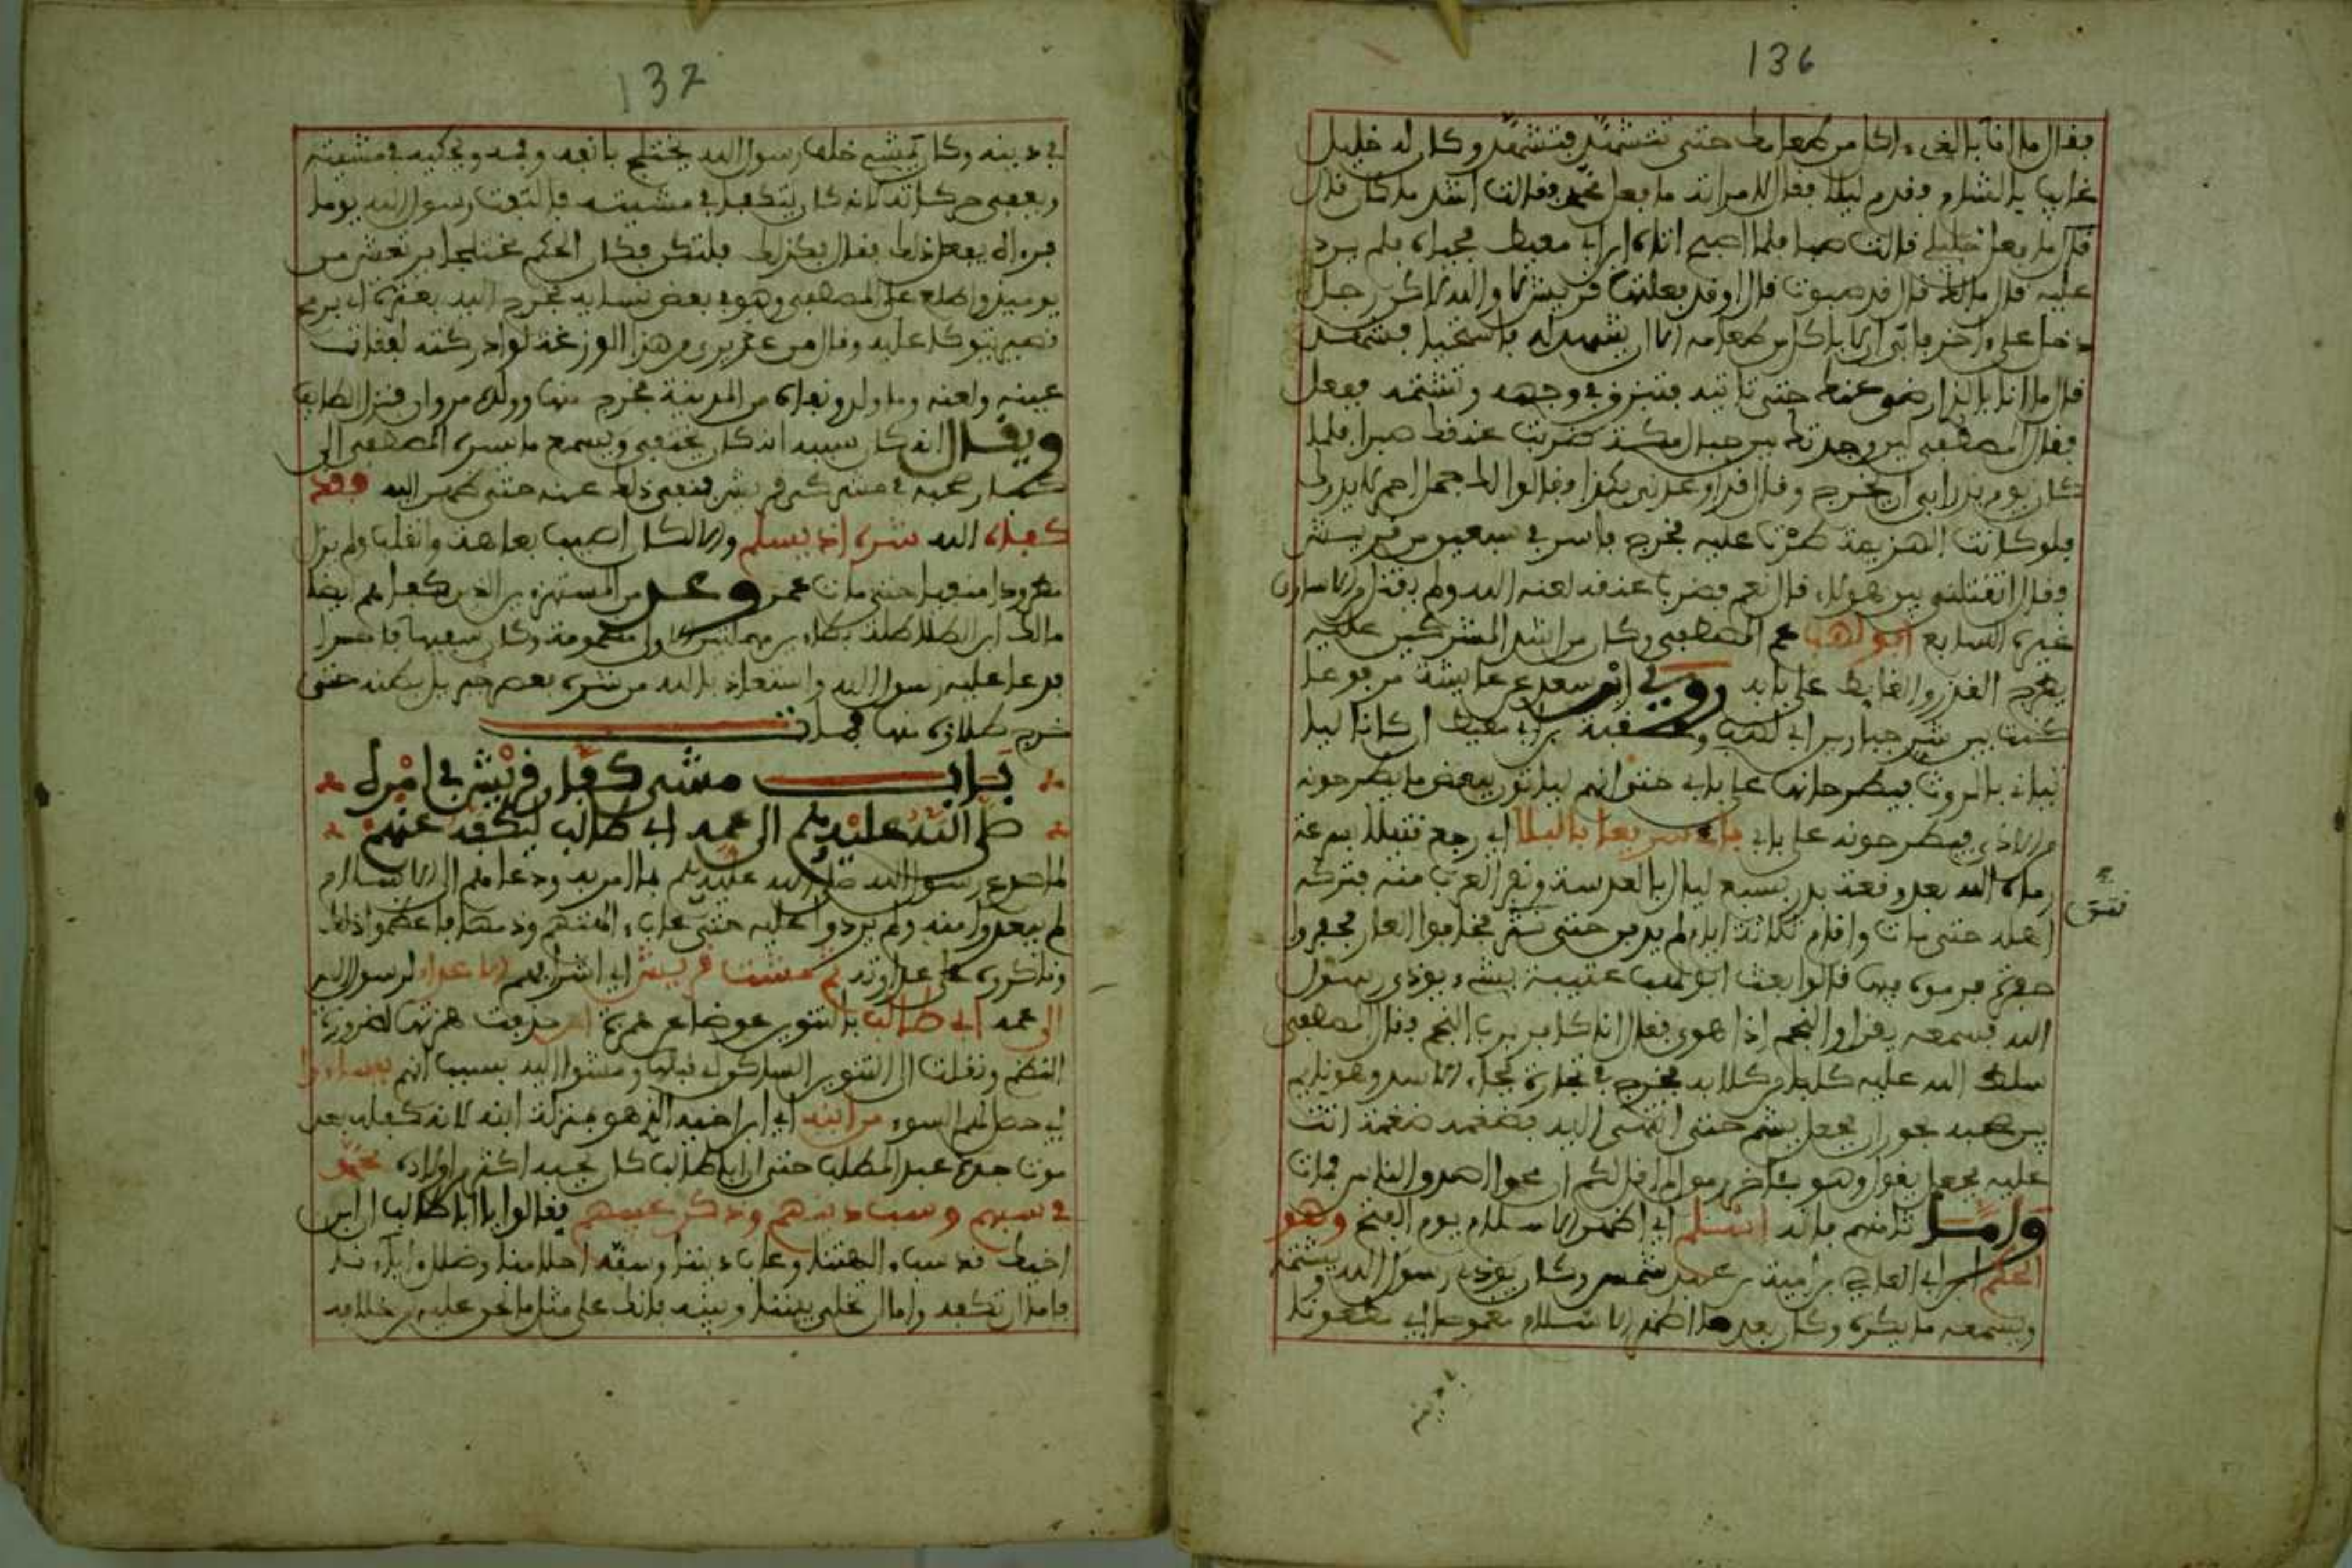 136
فقال ما انا بالذي ءاكل من طعامك حتى تتشهد فتشهد وكان له خليل
غايب بالشام فقدم ليلا فقال لامراته ما فعل محمد فقالت اشد ما كان
قال ما فعل خليلي قالت صبا فلما اصبح اتاه ابن ابي معيط فحياه فلم يرد
عليه قال مالك قال قد صبوت قال اوقد فعلتها قريش لا والله لاكن رجل
دخل علي فابى ان ياكل من طعامه الا ان يشهد له فاستحيا فشهد
قال ما انا بالذي ارضى عنك حتى تاتيه فتبزق في وجهه وتشتمه ففعل
فقال المصطفى ان وجدتك من جبال مكة ضربت عنقك صبرا فلما
كان يوم بدر ابى ان يخرج وقال قد اوعدني بكذا وقالوا لك جمل احمر لا يدرك
فلو كانت الهزيمة طرت عليه فخرج فاسر في سبعين من قريش
فقال اتقتلني من بين هولاء قال نعم فضرب عنقه لعنه الله ولم يقتل من الاسارى
غيره السابع ابو لهب عم المصطفى وكان من اشد المشركين عليه
يطرح القذر والغايط على بابه روى ابن سعد عن عايشة مرفوعا
كنت بين شر جارين ابي لهب وعقبة بن ابي معيط ان كانا ليا
تيان بالروث فيطرحانها على بابي حتى انهم لياتون ببعض ما يطرحونه
من الاذى فيطرحونه على بابي باء سريعا بالبلا اي رجع تثبيلا بسرعة
رماه الله بعد وقعة بدر بسبع ليال بالعدسة ونفر العرب منه فتركه
اهله حتى مات واقام ثلاثة ايام لم يدفن حتى نتن فخافوا العار فحفروا
حفرة فرموه فيها قالوا بعث ابو لهب عتيبة بشيء يوذي رسول
الله فسمعه يقرا والنجم اذا هوى فقال انا كافر برب النجم فقال المصطفى
سلط الله عليه كلبا من كلابه فخرج في تجارة فجاء الاسد وهو نايم
بين صحبه فجعل يشم حتى انتهى اليه فضغمه ضغمة اتت
عليه فجعل يقول وهو بئاخر رمق الم اقل لكم ان محمدا اصدق الناس فمات
واما ثامنهم فانه اسلم اي اظهر الاسلام يوم الفتح وهو
الحكم بن ابي العاصي بن امية بن عبد شمس وكان يوذي رسول الله ويشتمه
ويسمعه ما يكره وكان بعد ما اظهر الاسلام مغموصا اي مطعونا
نتن
137
في دينه وكان يمشي خلف رسول الله يختلج بانفه وفمه ويحكيه في مشيته
وبعض حركاته لانه كان يتكفا في مشيته فالتفت رسول الله يوما
فرءاه يفعل ذلك فقال كذلك فلتكن فكان الحكم مختلجا يرتعش من
يوميذ واطلع على المصطفى وهو في بعض نسايه فخرج اليه بعنزة اي برمح
قصير يتوكا عليه وقال من عذيري من هذا الوزغة لو ادركته لفقات
عينه ولعنه وما ولد ونفاه من المدينة فخرج منها وولده مروان فنزل الطايف
ويقال انه كان سببه انه كان يختفي ويسمع ما يسره المصطفى الى
كبار صحبه في مشركي قريش فيفشي ذلك عنه حتى ظهر اليه فقد
كفاه الله شره اذ يسلم
مالك ابن الطلاطلة
فدعا عليه رسول الله واستعاذ بالله من شره
باب مشي كفار قريش في امره
صلى الله عليه وسلم الى عمه ابي طالب ليكفه عنهم
لما صدع رسول الله صلى الله عليه وسلم بما امر به ودعاهم الى الاسلام
لم يبعدوا منه ولم يردوا عليه حتى عاب ءالهتهم وذمها فاعظموا ذلك
وناكروه على عداوته ثم مشت قريش اي اشرافهم الاعداء لرسول الله
الى عمه ابي طالب بالتنوين عوضا عن همزة
النظم ونقلت الى التنوين الساكن قبلها ومشوا اليه بسبب انهم يساءوا
اي حصل لهم السوء من ابنه اي ابن اخيه الذي هو بمنزلة ابنه لانه كفله بعد
موت جده عبد المطلب حتى ان ابا طالب كان يحبه اكثر من اولاده محمد
في سبهم وسب دينهم وذكر عيبهم فقالوا يا ابا طالب ان ابن
اخيك قد سب ءالهتنا وعاب ديننا وسفه احلامنا وضلل ءاباءنا
فاما ان تكفه واما ان تخلي بيننا وبينه فانك على مثل ما نحن عليه من خلافه